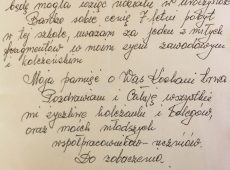 będę mogła wziąć udziału w uroczystości
Bardzo sobie cenię 7-letni pobyt
w tej szkole, uważam za jeden z miłych
fragmentów w moim życiu zawodowym
i koleżeńskim.
Moja pamięć o Was Kochani trwa
Pozdrawiam i Całuję wszystkie
mi życzliwe koleżanki i kolegów,
oraz moich młodszych
współpracowników - uczniów.
Do zobaczenia.